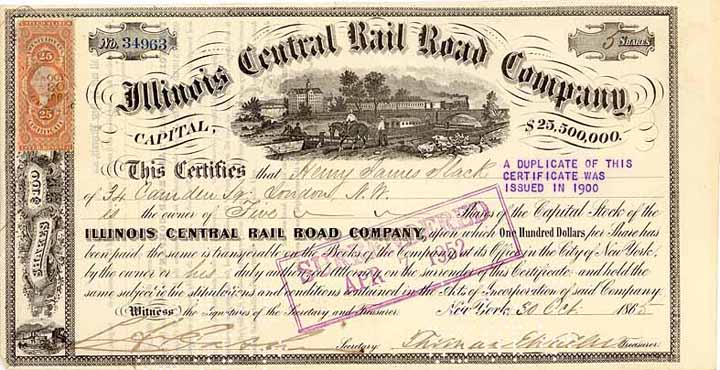 No. 34963
5 SHARES
Illinois Central Rail Road Company,
CAPITAL,
$25,500,000.
25
25
$100
SHARES
$100
This Certifies that Henry James Slack
A DUPLICATE OF THIS
CERTIFICATE WAS
ISSUED IN 1900
of 34 Camden Sq. London, N.W.
is the owner of Five Shares of the Capital Stock of the
ILLINOIS CENTRAL RAIL ROAD COMPANY, upon which One Hundred Dollars, per Share has
been paid: the same is transferable on the Books of the Company at its Office in the City of New York,
by the owner or his duly authorized Attorney, on the surrender of this Certificate and held the
same subject to the stipulations and conditions contained in the Acts of Incorporation of said Company.
SURRENDERED
APR 1952
Witness the Signatures of the Secretary and Treasurer. New York, 30 Oct. 1865
Secretary. Treasurer.